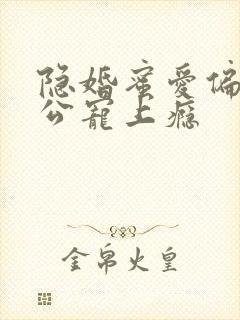 隐婚蜜爱偏
公宠上瘾
金帛火皇